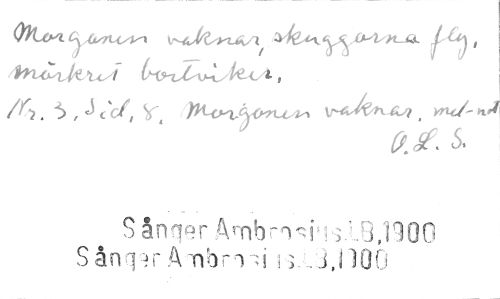 Morgonen vaknar, skuggorna fly,
mörkret bortviker,
Nr. 3, Sid, 8. Morgonen vaknar. mel-not
O. L. S.
Sånger Ambrosius.LB,1900
Sånger Ambrosius.LB,1900